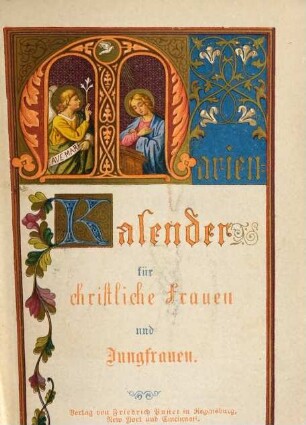 Marien-
AVE MARIA
Kalender
für
christliche Frauen
und
Jungfrauen.
Verlag von Friedrich Pustet in Regensburg,
New York und Cincinnati.